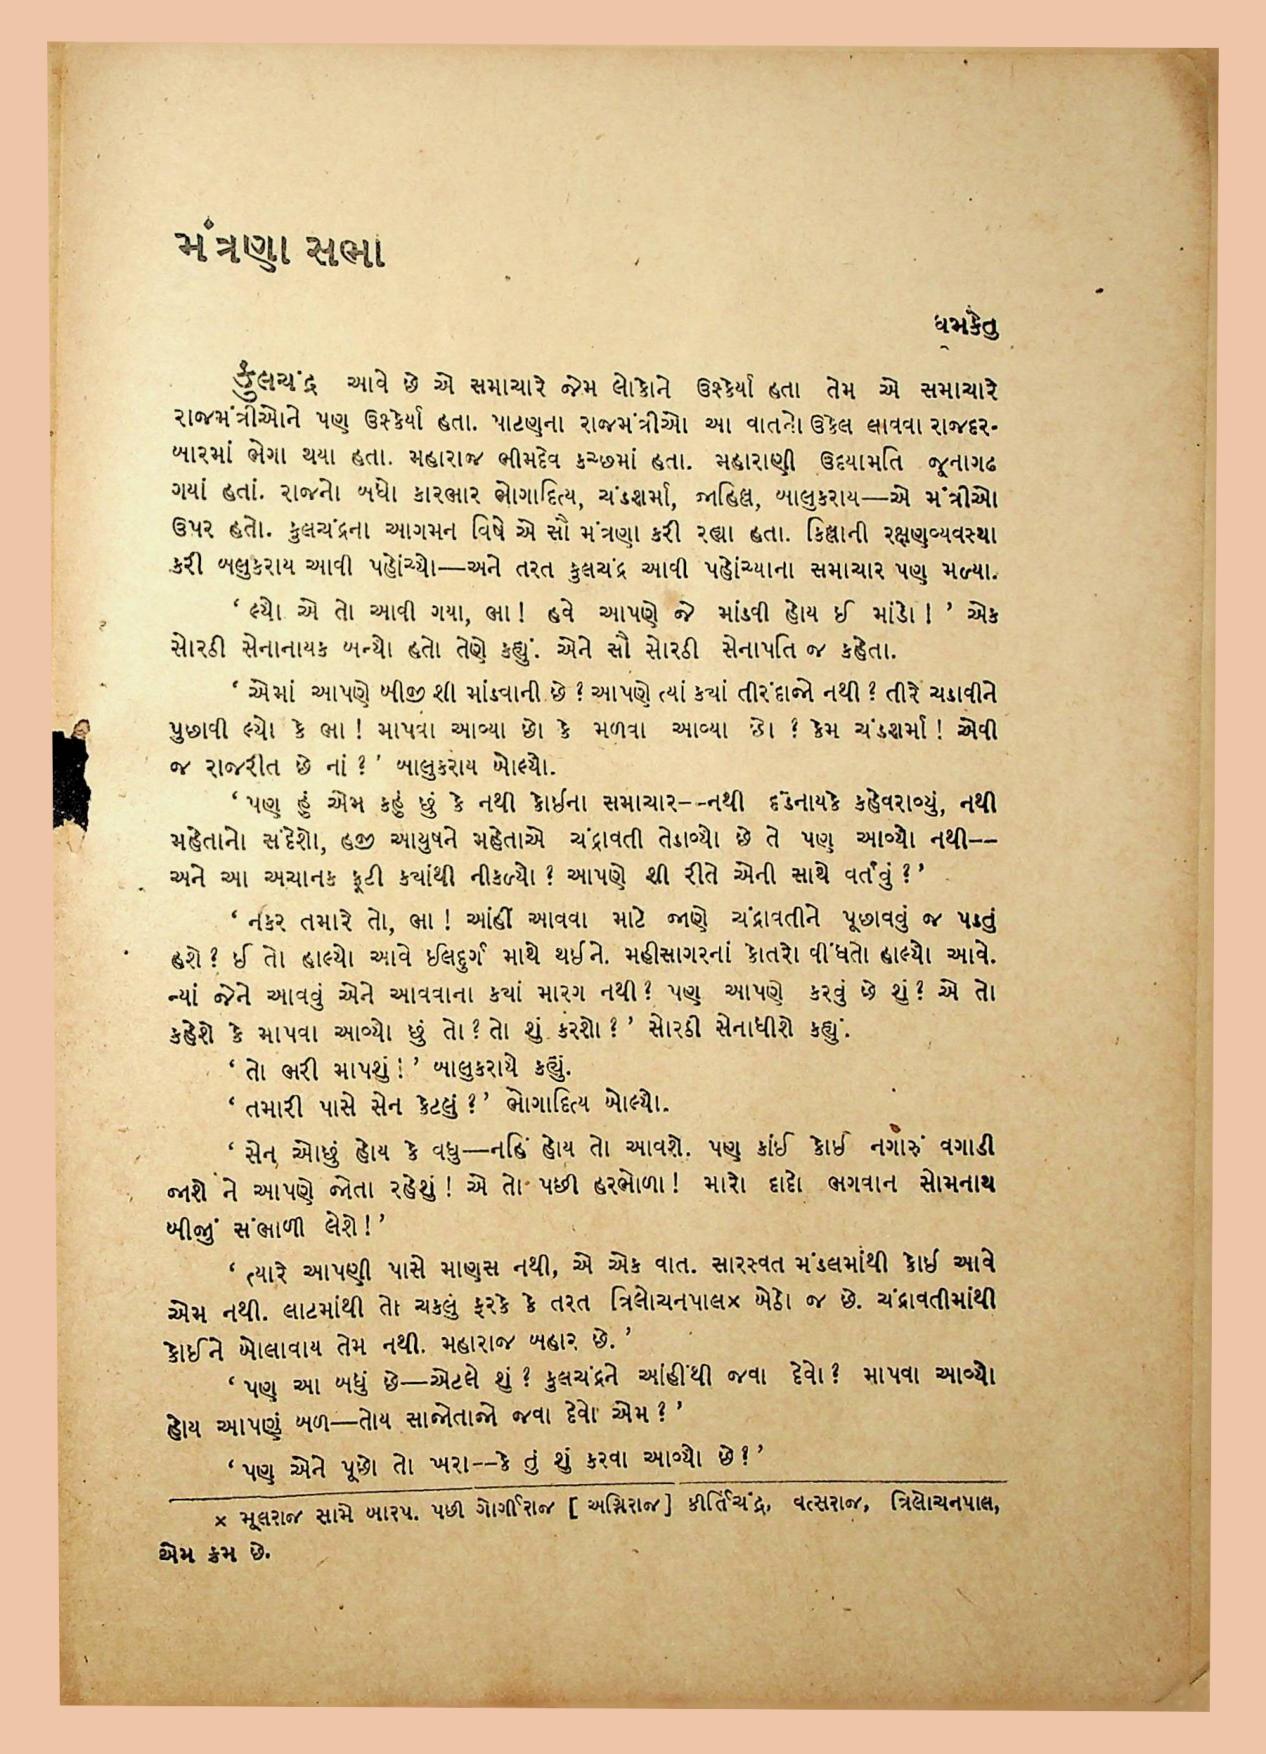 મંત્રણા સભા
ધૂમકેતુ
કુલચંદ્ર આવે છે એ સમાચારે જેમ લોકોને ઉશ્કેર્યા હતા તેમ એ સમાચારે
રાજમંત્રીઓને પણ ઉશ્કેર્યા હતા. પાટણના રાજમંત્રીઓ આ વાતનો ઉકેલ લાવવા રાજદર-
બારમાં ભેગા થયા હતા. મહારાજ ભીમદેવ કચ્છમાં હતા. મહારાણી ઉદયામતિ જૂનાગઢ
ગયાં હતાં. રાજનો બધો કારભાર ભોગાદિત્ય, ચંડશર્મા, જાહિલ્લ, બાલુકરાય—એ મંત્રીઓ
ઉપર હતો. કુલચંદ્રના આગમન વિષે એ સૌ મંત્રણા કરી રહ્યા હતા. કિલ્લાની રક્ષણવ્યવસ્થા
કરી બાલુકરાય આવી પહોંચ્યો—અને તરત કુલચંદ્ર આવી પહોંચ્યાના સમાચાર પણ મળ્યા.
‘ લ્યો એ તો આવી ગયા, ભા! હવે આપણે જે માંડવી હોય ઈ માંડો! ’ એક
સોરઠી સેનાનાયક બન્યો હતો તેણે કહ્યું. એને સૌ સોરઠી સેનાપતિ જ કહેતા.
‘ એમાં આપણે બીજી શી માંડવાની છે? આપણે ત્યાં ક્યાં તીરંદાજો નથી? તીરે ચડાવીને
પુછાવી લ્યો કે ભા! માપવા આવ્યા છો કે મળવા આવ્યા છો? કેમ ચંડશર્મા! એવી
જ રાજરીત છે નાં? ’ બાલુકરાય બોલ્યો.
‘ પણ હું એમ કહું છું કે નથી કોઈના સમાચાર--નથી દંડનાયકે કહેવરાવ્યું, નથી
મહેતાનો સંદેશો, હજી આયુષને મહેતાએ ચંદ્રાવતી તેડાવ્યો છે તે પણ આવ્યો નથી--
અને આ અચાનક ફૂટી ક્યાંથી નીકળ્યો? આપણે શી રીતે એની સાથે વર્તવું? ’
‘ નકર તમારે તો, ભા! આંહીં આવવા માટે જાણે ચંદ્રાવતીને પૂછાવવું જ પડતું
હશે? ઈ તો હાલ્યો આવે ઈલદુર્ગ માથે થઈને. મહીસાગરનાં કોતરો વીંધતો હાલ્યો આવે.
ન્યાં જેને આવવું એને આવવાના ક્યાં મારગ નથી? પણ આપણે કરવું છે શું? એ તો
કહેશે કે માપવા આવ્યો છું તો? તો શું કરશો? ’ સોરઠી સેનાધીશે કહ્યું.
‘ તો ભરી માપશું! ’ બાલુકરાયે કહ્યું.
‘ તમારી પાસે સેન કેટલું? ’ ભોગાદિત્ય બોલ્યો.
‘ સેન ઓછું હોય કે વધુ—નહિં હોય તો આવશે. પણ કાંઈ કોઈ નગારું વગાડી
જાશે ને આપણે જોતા રહેશું! એ તો પછી હરભોળા! મારો દાદો ભગવાન સોમનાથ
બીજું સંભાળી લેશે! ’
‘ ત્યારે આપણી પાસે માણસ નથી, એ એક વાત. સારસ્વત મંડલમાંથી કોઈ આવે
એમ નથી. લાટમાંથી તો ચકલું ફરકે કે તરત ત્રિલોચનપાલ× બેઠો જ છે. ચંદ્રાવતીમાંથી
કોઈને બોલાવાય તેમ નથી. મહારાજ બહાર છે. ’
‘ પણ આ બધું છે—એટલે શું? કુલચંદ્રને આંહીંથી જવા દેવો? માપવા આવ્યો
હોય આપણું બળ—તોય સાજોતાજો જવા દેવો એમ? ’
‘ પણ એને પૂછો તો ખરા--કે તું શું કરવા આવ્યો છે? ’
× મૂલરાજ સામે બારપ. પછી ગોર્ગીરાજ [ અગ્નિરાજ ] કીર્તિચંદ્ર, વત્સરાજ, ત્રિલોચનપાલ,
એમ ક્રમ છે.